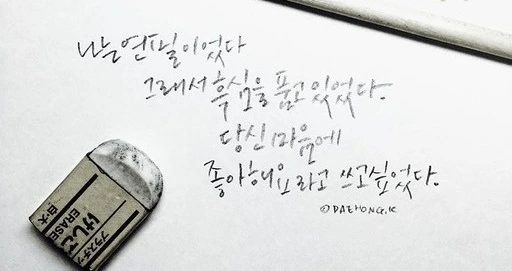 나는 연필이었다
그래서 흑심을 품고 있었다.
당신 마음에
좋아해요 라고 쓰고 싶었다.
©DAEHONG.K
けしゴ
プラスチ
ERASE